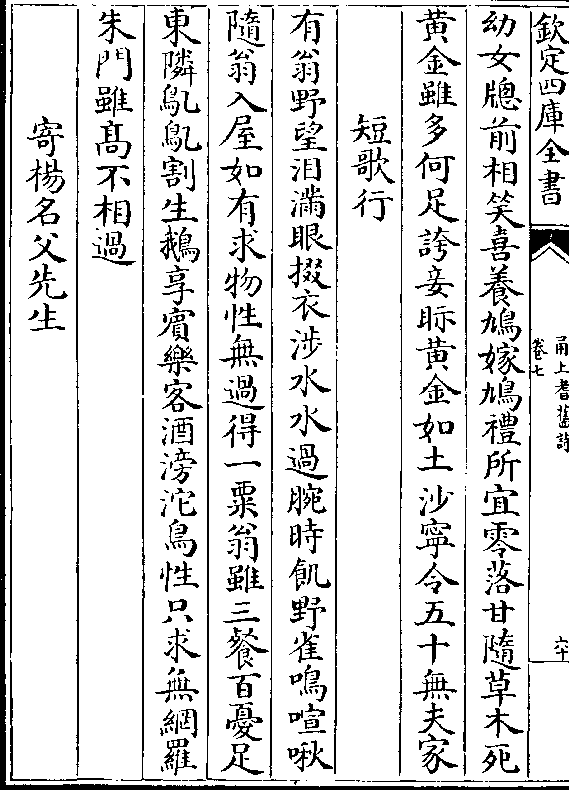 欽定四庫全書
甬上耆舊詩
卷七
六十
幼女牕前相笑喜養鳩嫁鳩禮所宜零落甘隨草木死
黄金雖多何足誇妾眎黄金如土沙寧令五十無夫家
短歌行
有翁野望泪滿眼掇衣涉水水過腕時飢野雀鳴喧啾
隨翁入屋如有求物性無過得一粟翁雖三餐百憂足
東隣鳦鳦割生鵝享賓樂客酒滂沱鳥性只求無網羅
朱門雖髙不相過
寄楊名父先生